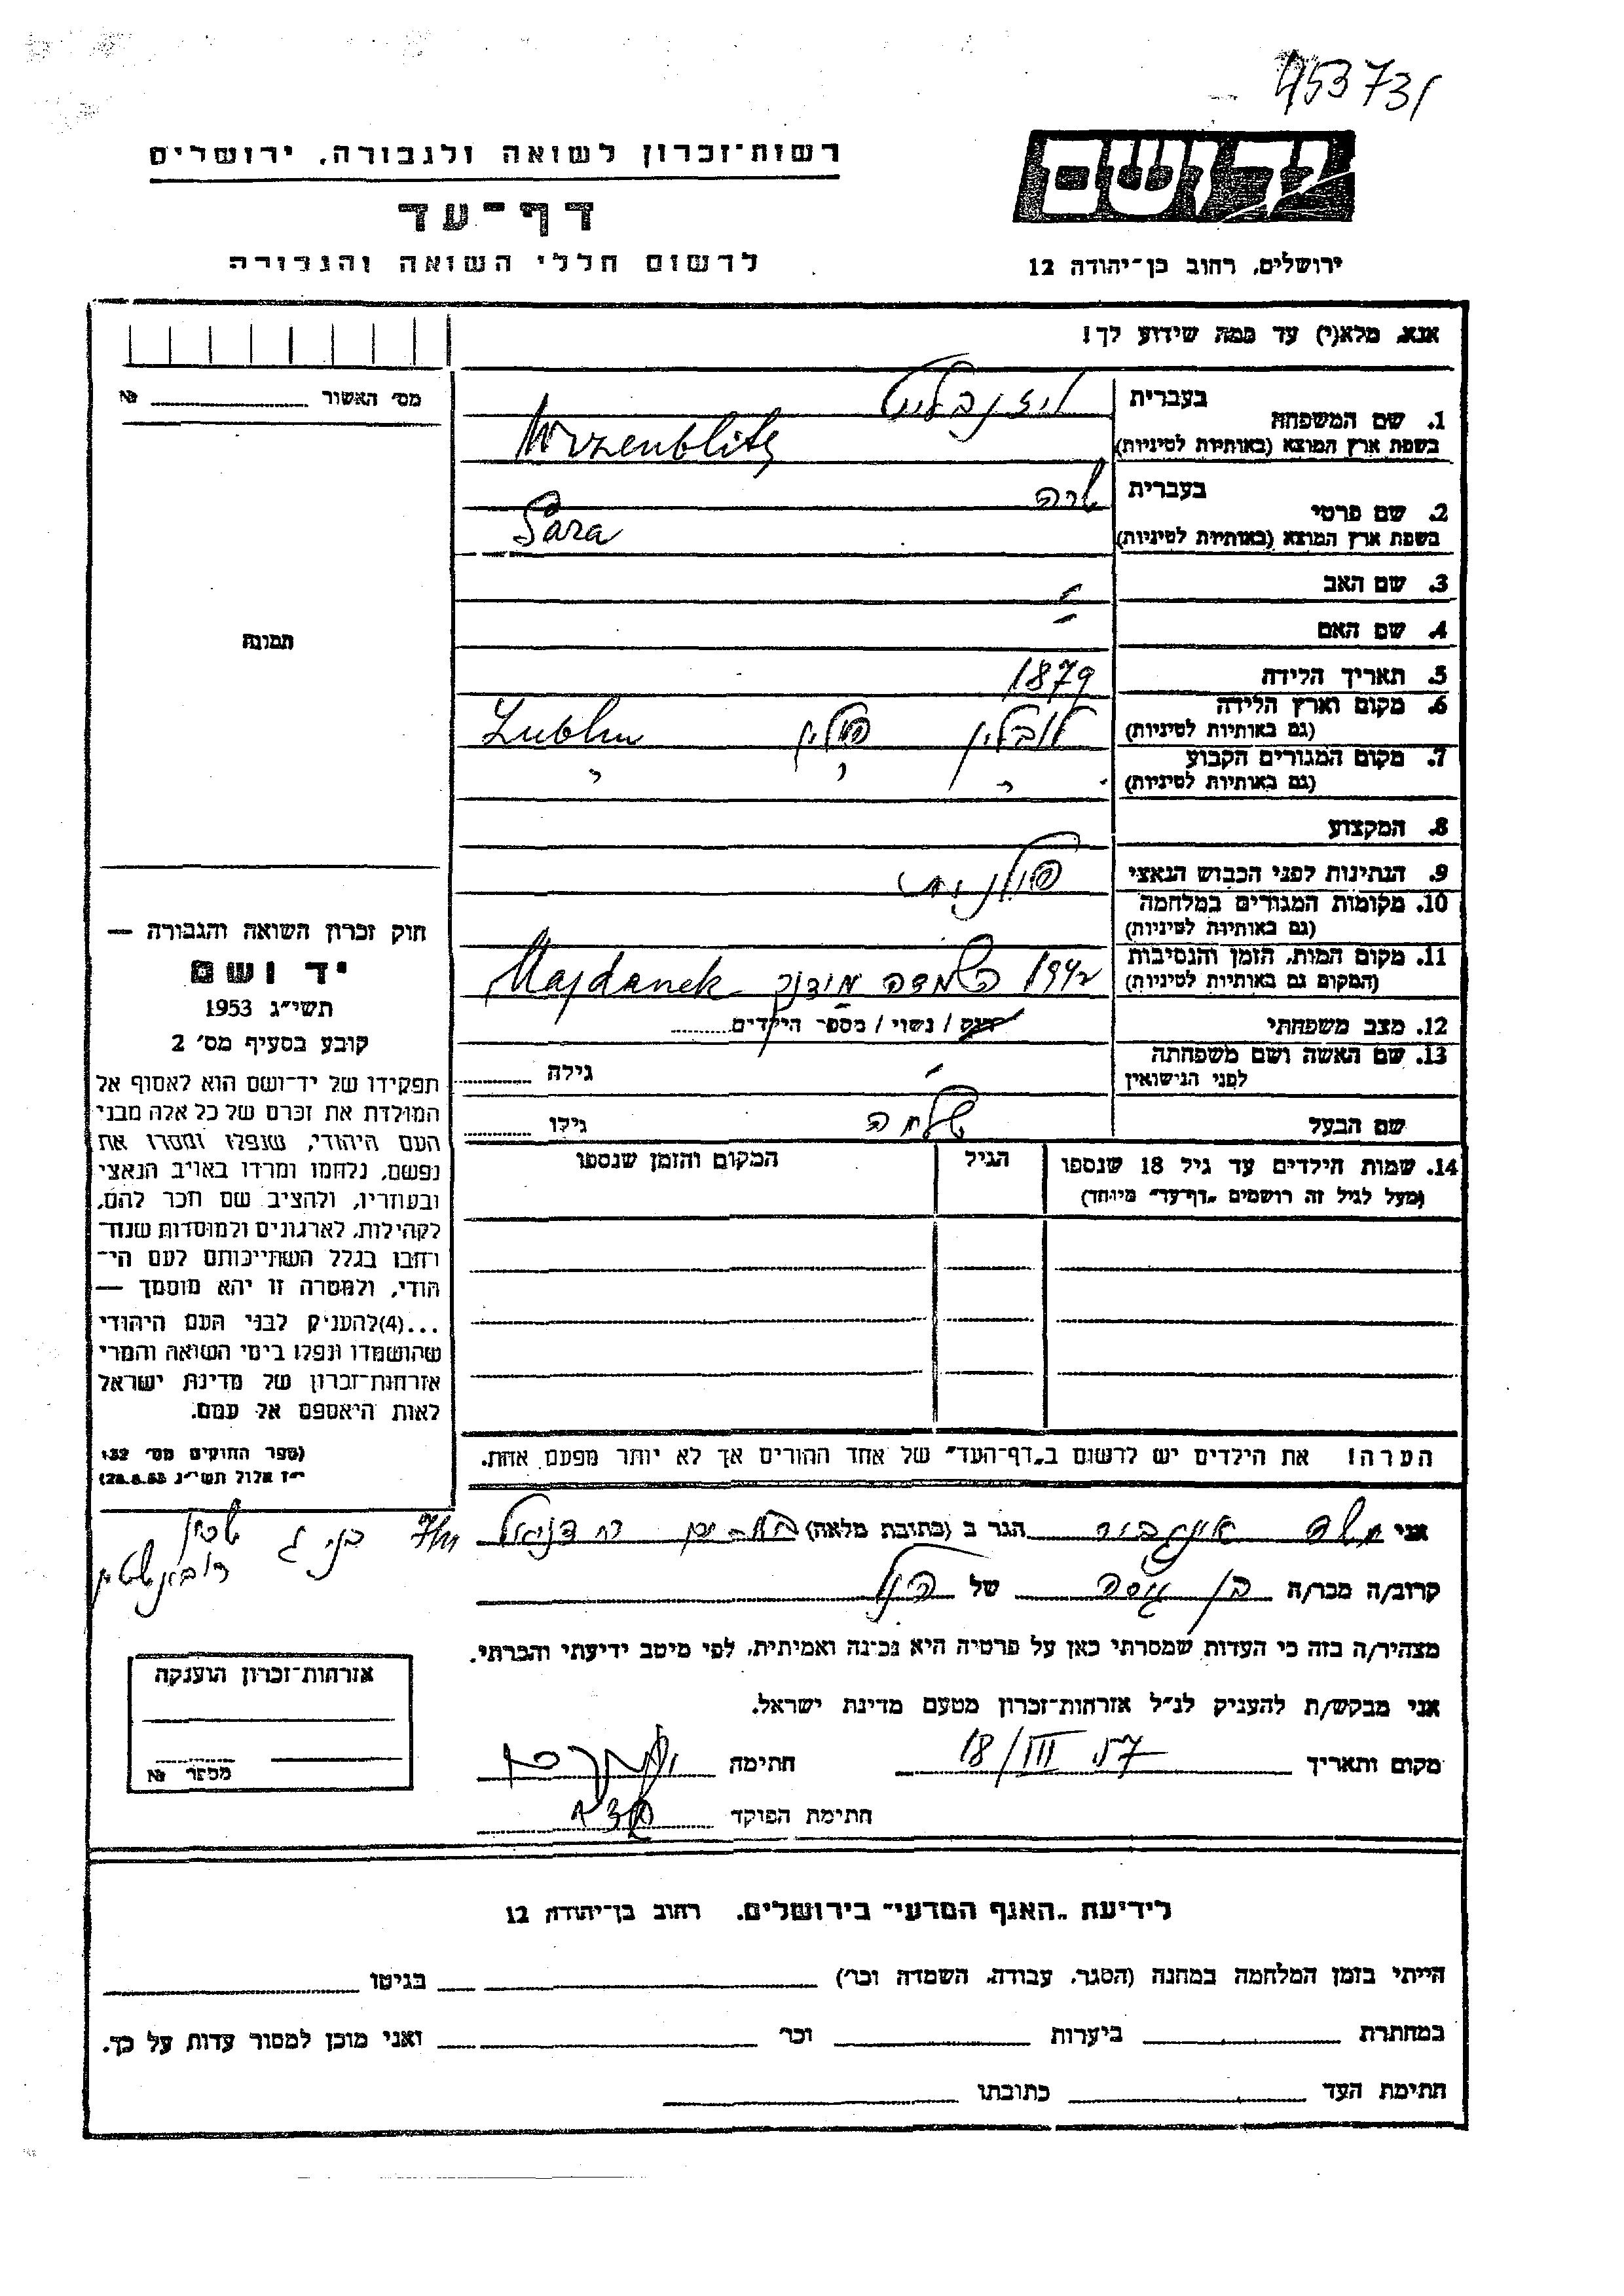 453731
רשות־זכרון לשואה ולגבורה, ירושלים
דף־עד
לרשום חללי השואה והגבורה
יד ושם
ירושלים, רחוב בן־יהודה 12
אנא, מלא(י) עד כמה שידוע לך!
מס׳ האשור №
תמונה
1. שם המשפחה
בעברית
בשפת ארץ המוצא (באותיות לטיניות)
2. שם פרטי
בעברית שרה
בשפת ארץ המוצא (באותיות לטיניות) Sara
3. שם האב -
4. שם האם -
5. תאריך הלידה 1879
6. מקום וארץ הלידה
(גם באותיות לטיניות) לובלין פולין Lublin
7. מקום המגורים הקבוע
(גם באותיות לטיניות) " " "
8. המקצוע
9. הנתינות לפני הכבוש הנאצי פולנית
10. מקומות המגורים במלחמה
(גם באותיות לטיניות)
11. מקום המות, הזמן והנסיבות
(המקום גם באותיות לטיניות) 1942 השמדה מידנק Majdanek
12. מצב משפחתי רווק / נשוי / מספר הילדים
13. שם האשה ושם משפחתה
לפני הנישואין - גילה
שם הבעל גילו
14. שמות הילדים עד גיל 18 שנספו
(מעל לגיל זה רושמים „דף־עד״ מיוחד)
הגיל
המקום והזמן שנספו
הערה! את הילדים יש לרשום ב„דף־העד״ של אחד ההורים אך לא יותר מפעם אחת.
חוק זכרון השואה והגבורה —
יד ושם
תשי״ג 1953
קובע בסעיף מס׳ 2
תפקידו של יד־ושם הוא לאסוף אל
המולדת את זכרם של כל אלה מבני
העם היהודי, שנפלו ומסרו את
נפשם, נלחמו ומרדו באויב הנאצי
ובעוזריו, ולהציב שם וזכר להם,
לקהילות, לארגונים ולמוסדות שנח־
רבו בגלל השתייכותם לעם הי־
הודי, ולמטרה זו יהא מוסמך —
...(4)להעניק לבני העם היהודי
שהושמדו ונפלו בימי השואה והמרי
אזרחות־זכרון של מדינת ישראל
לאות היאספם אל עמם.
(ספר החוקים מס׳ 132
י״ז אלול תשי״ג 28.8.53)
אני הגר ב (כתובת מלאה)
קרוב/ה מכר/ה של הנ״ל
מצהיר/ה בזה כי העדות שמסרתי כאן על פרטיה היא נכונה ואמיתית, לפי מיטב ידיעתי והכרתי.
אני מבקש/ת להעניק לנ״ל אזרחות־זכרון מטעם מדינת ישראל.
מקום ותאריך 18/III 57 חתימה
חתימת הפוקד
אזרחות־זכרון הוענקה
מספר №
לידיעת „האגף המדעי״ בירושלים, רחוב בן־יהודה 12
הייתי בזמן המלחמה במחנה (הסגר, עבודה, השמדה וכו׳) בגיטו
במחתרת ביערות וכו׳ ואני מוכן למסור עדות על כך.
חתימת העד כתובתו